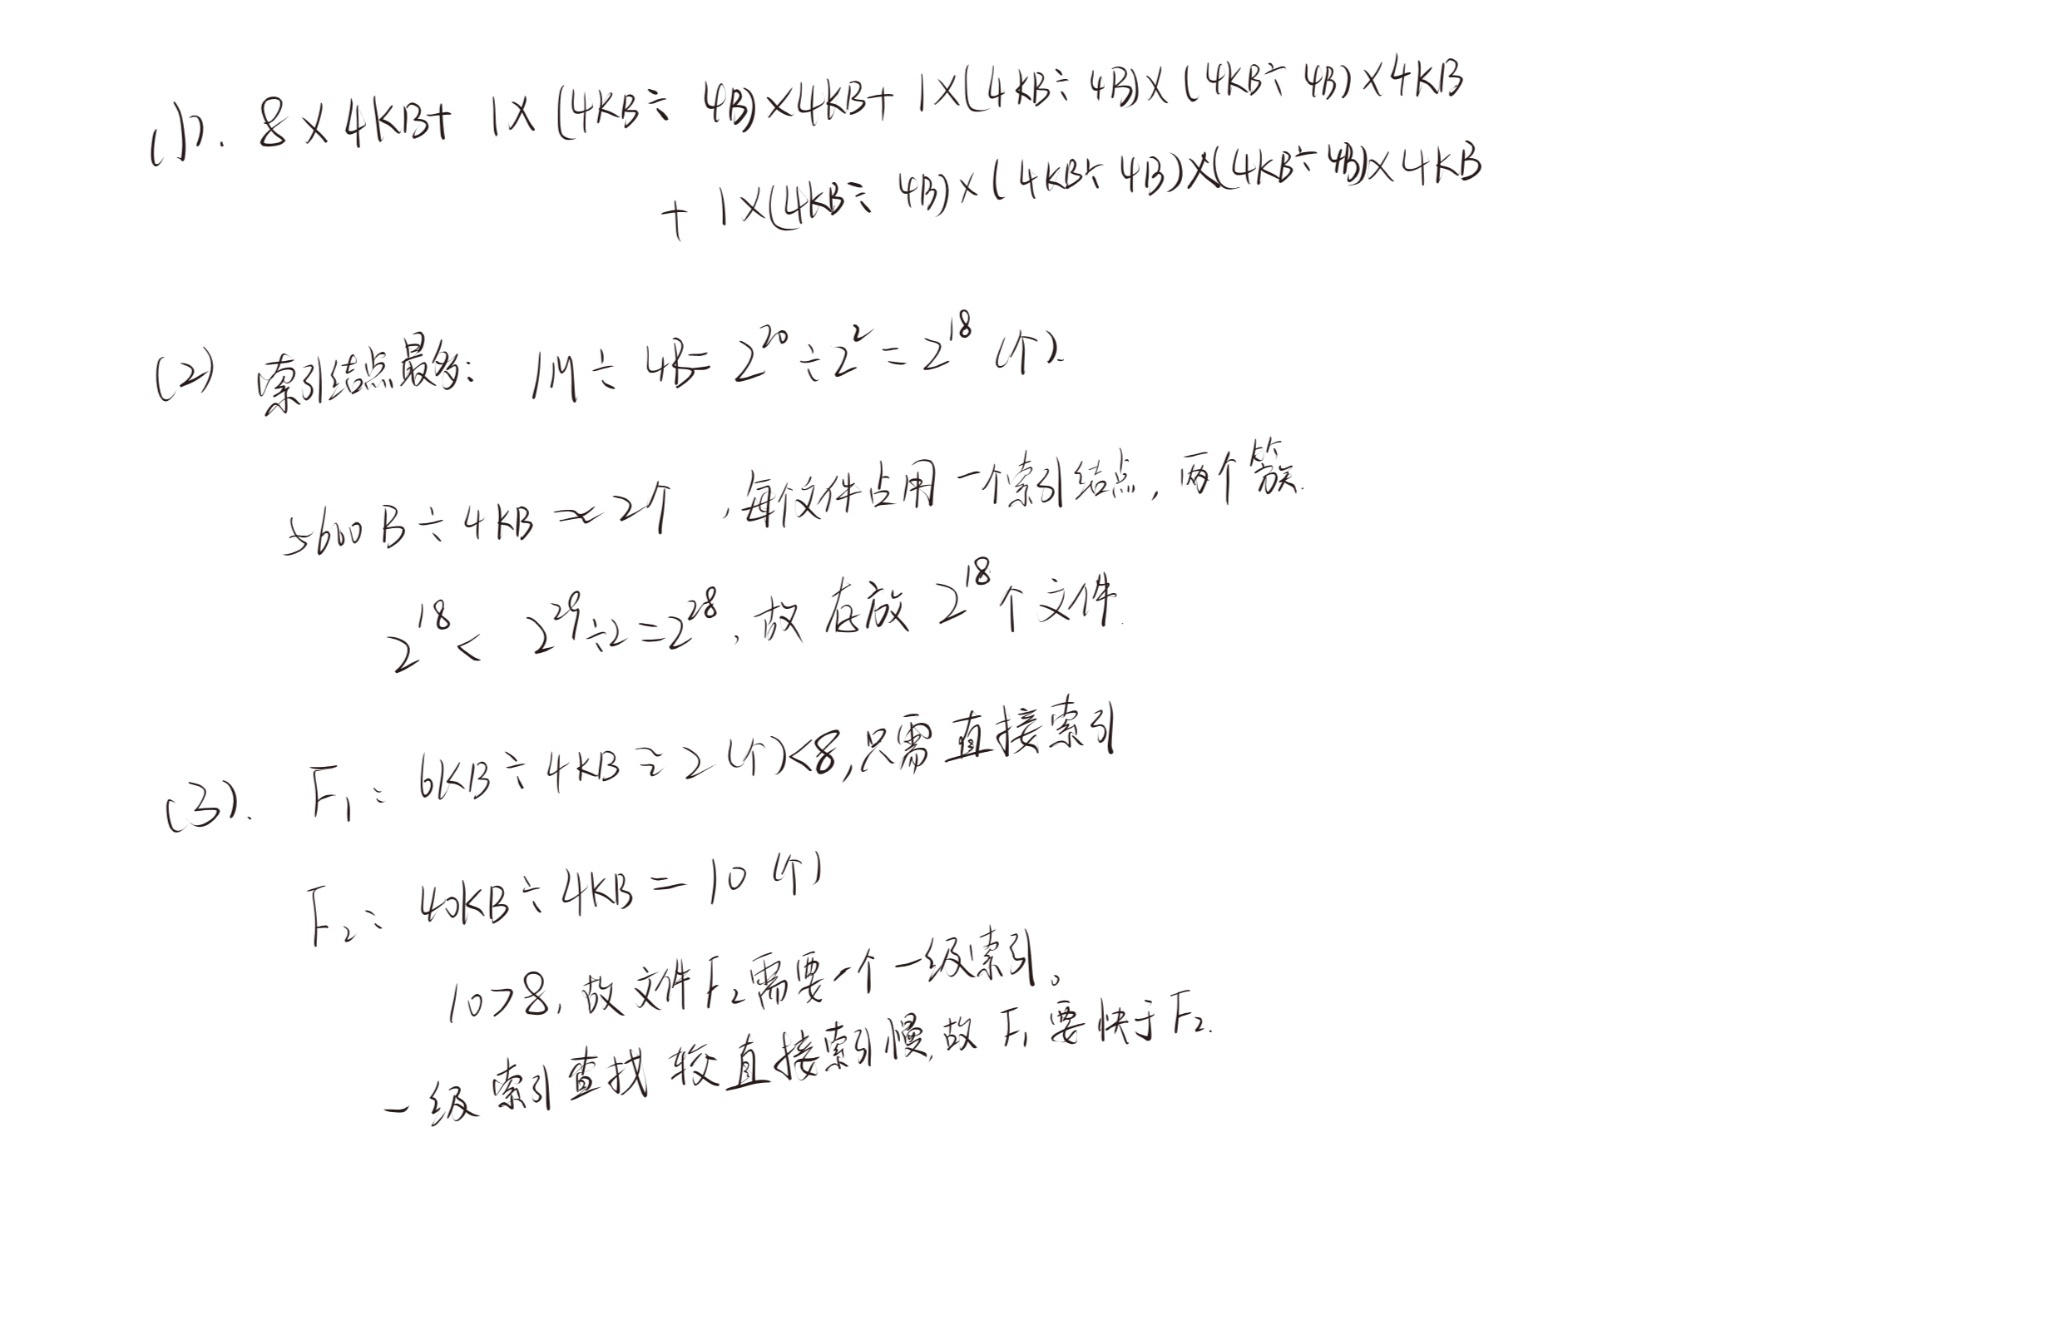 (1). 8×4KB+ 1×(4KB÷ 4B)×4KB+ 1×(4KB÷ 4B)×(4KB÷ 4B)×4KB
+ 1×(4KB÷ 4B)×(4KB÷ 4B)×(4KB÷4B)×4KB
(2) 索引结点最多: 1M÷ 4B= 2^20÷2^2=2^18 (个).
5600B÷4KB≈2个 ,每个文件占用一个索引结点,两个簇.
2^18< 2^29÷2=2^28,故存放2^18个文件.
(3). F₁: 6KB÷4KB≈2(个)<8,只需直接索引
F₂: 40KB÷4KB=10(个)
10>8,故文件F₂需要一个一级索引。
一级索引查找较直接索引慢,故F₁要快于F₂.